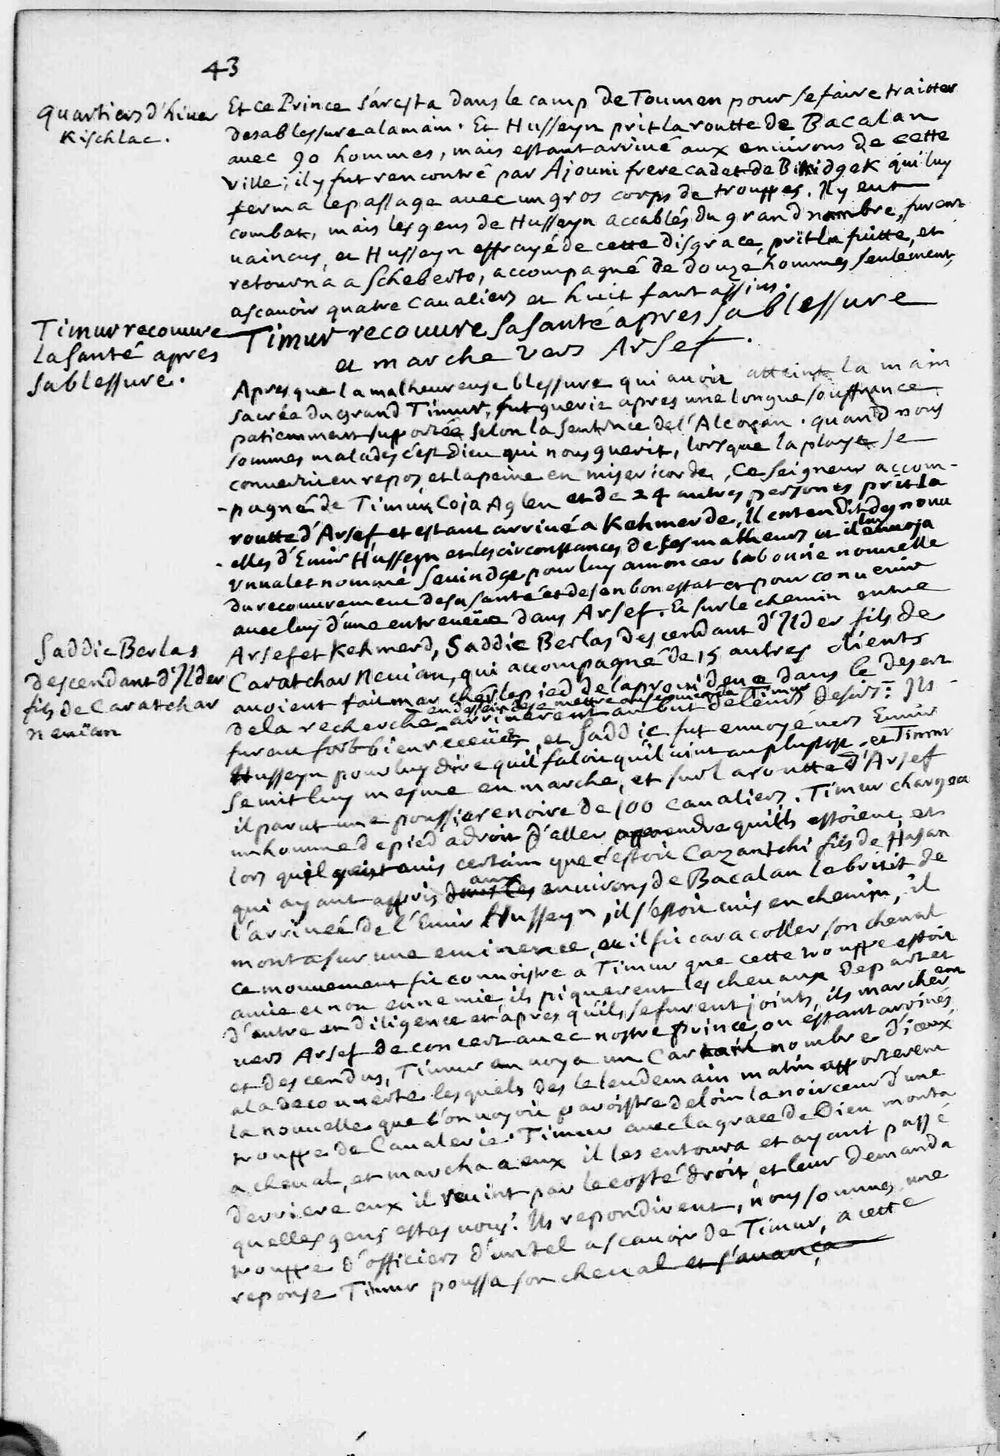 43
quartiers d'hiver
Kischlac.
Et ce Prince s'aresta dans le camp de Toumen pour se faire traitter
de sa blessure a la main. Et Husseyn prit la routte de Bacalan
avec 90 hommes, mais estant arrivé aux environs de cette
ville; il y fut rencontré par Ajouni frere cadet de Bikidgek qui luy
ferma le passage avec un gros corps de trouppes. Il y eut
combat, mais les gens de Husseyn accablés du grand nombre, furent
vaincus, et Husseyn effrayé de cette disgrace, prit la fuitte, et
retourna a Scheberto, accompagné de douze hommes seulement,
ascavoir quatre Cavaliers et huit fantassins.
Timur recouvre
la santé apres
sa blessure.
Timur recouvre sa santé apres sa blessure
et marche vers Arsef.
Apres que la malheureuse blessure qui avoit atteint la main
sacréa du grand Timur, fut guerie apres une longue souffrance
patiemment suportée selon la sentence de l'Alcoran. quand nous
sommes malades c'est Dieu qui nous guerit, lorsque la playe se
convertit en repos et la peine en misericorde, Ce seigneur accom-
-pagné de Timur Coja Aglen et de 24 autres persones prit la
routte d'Arsef et estant arrivé a Kehmerde, Il entendit des nouv
-elles d'Emir Husseyn et les circonstances de ses malheurs et il luy envoja
un valet nommé Sevindge pour luy annoncer la bonne nouvelle
du recouvrement de sa santé et de son bon estat et pour convenir
avec luy d'une entreveüe dans Arsef. Et sur le chemin entre
Saddic Berlas
descendant d'Ilder
fils de Caratchar
nevian
Arsef et Kehmerd, Saddic Berlas descendant d'Ilder fils de
Caratchar Nevian, qui accompagné de 15 autres clients
avoient fait marcher le pied de la providence dans le desert
de la recherche en desir de se mettre au service de Timur
arriverent au but de leurs desirs: Ils
furent fort bien receües, et Saddic fut envoye vers Emir
Husseyn pour luy dire qu'il faloit qu'il vint au plustost. et Timur
se mit luy mesme en marche, et sur la routte d'Arsef
il parut une poussiere noire de 100 cavaliers. Timur chargea
un homme de pied adroit d'aller apprendre qu'ils estoient, et
lors qu'il eust avis certain que c'estoit Cazantchi fils de Hasan
qui ayant appris dans les aux environs de Bacalan le bruit de
l'arrivée de l'Emir Husseyn, il s'estoit mis en chemin, il
monta sur une eminence, et il fit caracoller son cheval
ce mouvement fit connoistre a Timur que cette trouppe estoit
amie et non ennemie, ils piquerent les chevaux de part et
d'autre en diligence et apres qu'ils se furent joints, ils marcherent
vers Arsef de concert avec nostre prince, ou estant arrivés,
et descendus, Timur envoya un Certain nombre d'iceux
a la decouverte lesquels des le lendemain matin apporterent
la nouvelle que l'on voyoit paroistre de loin la noirceur d'une
trouppe de Cavalerie. Timur avec la grace de Dieu monta
a cheval, et marcha a eux il les entoura et ayant passé
derriere eux il revint par le costé droit, et leur demanda
quelles gens estes vous? Ils repondirent, nous sommes une
trouppe d'officiers d'un tel ascavoir de Timur, a cette
reponse Timur poussa son cheval et s'avança